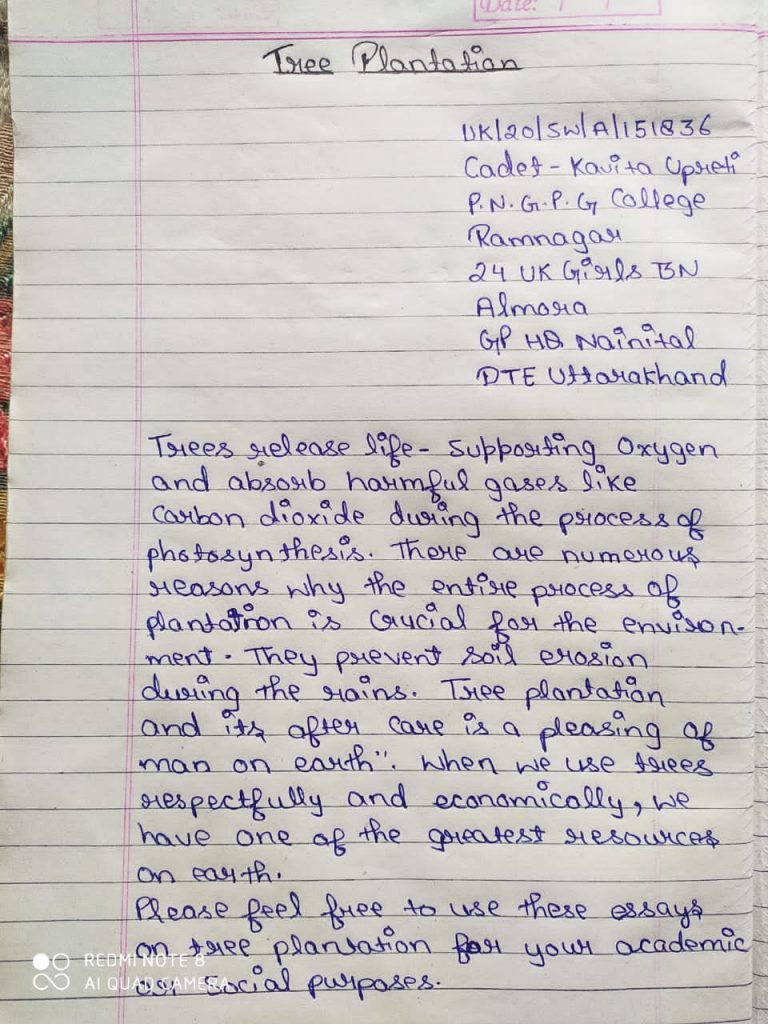 Date:
Tree Plantation
UK/20/SW/A/151836
Cadet - Kavita Upreti
P.N.G.P.G College
Ramnagar
24 UK Girls BN
Almora
GP HQ Nainital
DTE Uttarakhand
Trees release life- supporting Oxygen
and absorb harmful gases like
Carbon dioxide during the process of
photosynthesis. There are numerous
reasons why the entire process of
plantation is crucial for the environ-
ment. They prevent soil erosion
during the rains. Tree plantation
and its after care is a pleasing of
man on earth". When we use trees
respectfully and economically, we
have one of the greatest resources
on earth.
Please feel free to use these essays
on tree plantation for your academic
or social purposes.
REDMI NOTE 8
AI QUAD CAMERA